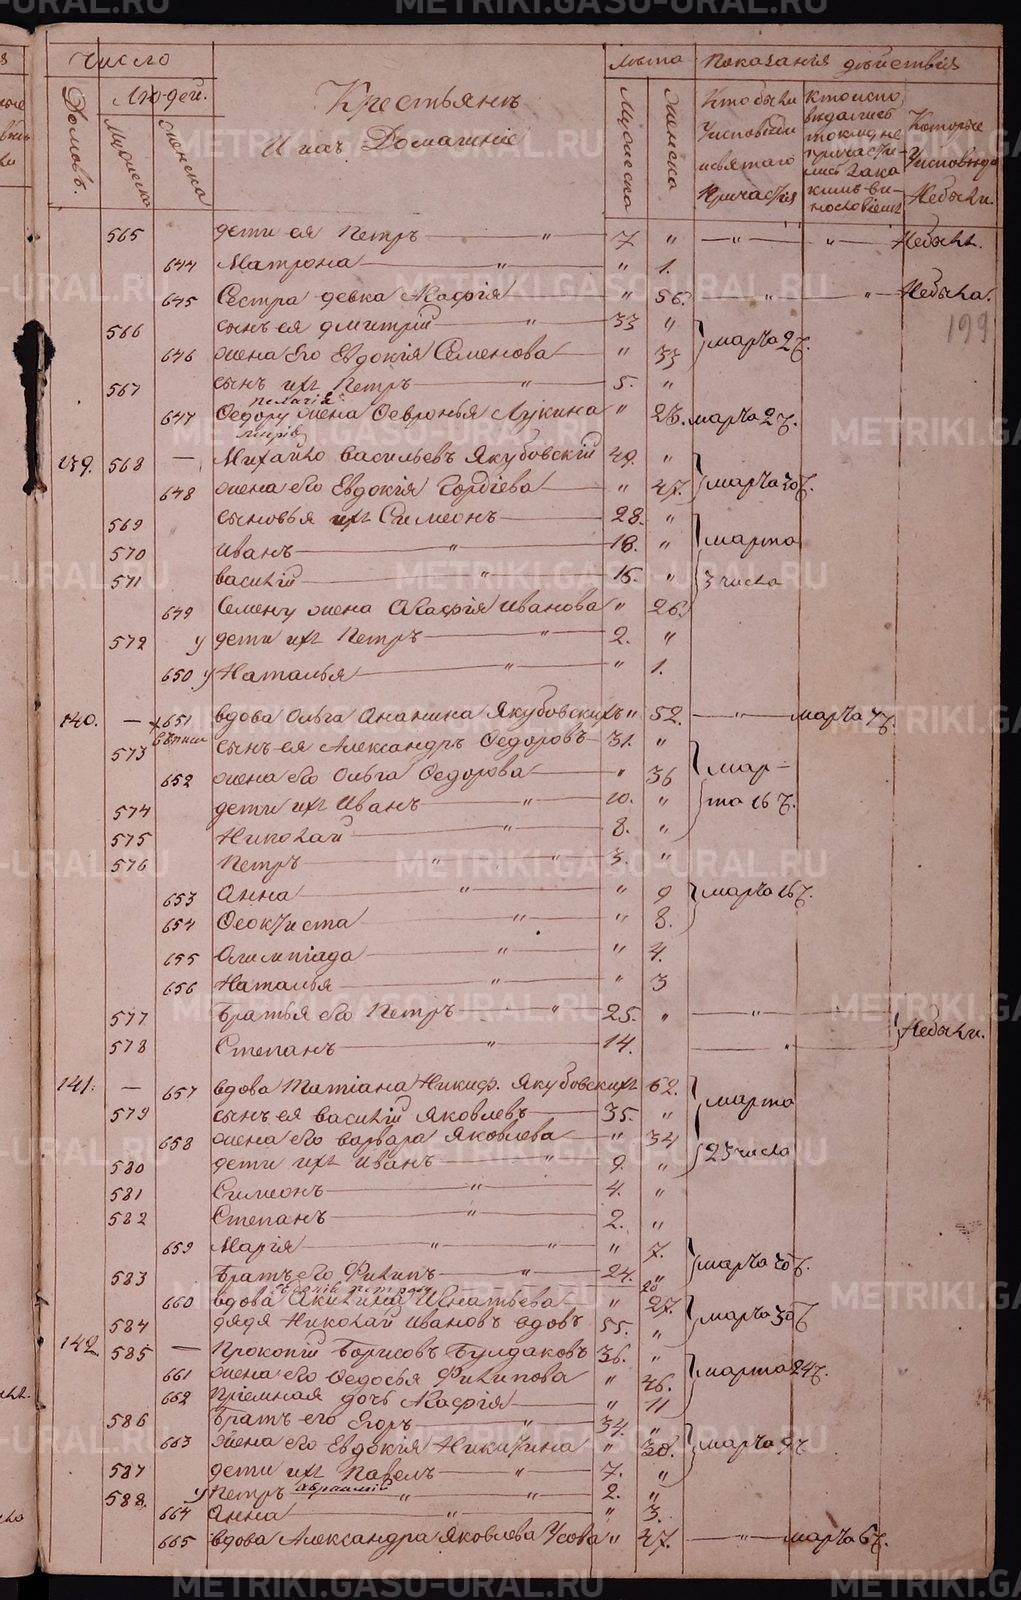 Число
Людей.
Домовъ.
Мужеска
женска
Крестьянъ
И ихъ Домашніе
Лѣта
Мужеска
женска
Показанія дѣйствія
Кто были У исповѣди и святаго Причастія
Кто испо видались токмо не причасти лись зака кимъ ви нословіемъ
Которые У исповѣди Небыли.
565 дети ея Петръ — " — 7 " — " — " — Небыли.
644 Матрона — " — " 1.
645 Сестра девка Агафія — " 56. — " — " Небыла.
199
566 сынъ ея Дмитрій — " — 33 "
646 жена Его Евдокія Семенова — " 33 } марта 27.
567 сынъ ихъ Петръ — " — 5. "
пелагія
647 Ѳедору жена Ѳевронья Лукина " 23. марта 27.
139. 568 — Михайло Васильевъ Якубовскій 49. "
648 жена его Евдокія Гордѣева — " 47. } марта 30
569 сыновья ихъ Симеонъ — 28. "
570 Иванъ — " — 18. " } марта
571 василій — " — 15. " } 3 числа
649 Семену жена Агафія Иванова " 26
572 у дети ихъ Петръ — " — 2. "
650 у Наталья — " — " 1.
140. — 651 вдова Ольга Ананина Якубовскихъ " 52. — " — марта 7
573 сынъ ея Александръ Ѳедоровъ — 31. "
652 жена его Ольга Ѳедорова — " 36 } мар-
574 дети ихъ Иванъ — " — 10. " } та 16
575 Николай — " — 8. "
576 Петръ — " — " — 3. "
653 Анна — " — " 9 } марта 16
654 Ѳеоктиста — " — " 8.
655 Олимпіада — " — " 4.
656 Наталья — " — " 3
577 Братья его Петръ — " — 25. " — " —
578 Степанъ — " — 14. — " — } Небыли.
141. — 657 вдова Татіана Никиф. Якубовскихъ 62.
579 сынъ ея Василій Яковлевъ — 35. " } марта
658 жена его Варвара Яковлева — " 34
580 дети ихъ Иванъ — " — 9. " } 23 числа
581 Симеонъ — " — 4. "
582 Степанъ — " — 2. "
659 Марія — " — " — " 7.
583 Братъ его Филипъ — " — 24. " } марта 30
660 вдова Акилина Игнатьева — " 27.
584 дядя Николай Ивановъ вдовъ 55. " } марта 30
142 585 — Прокопій Борисовъ Булдаковъ 36. "
661 жена его Ѳедосья Филипова " 46. } марта 24
662 Пріемная дочь Агафія — " 11
586 Братъ его Егоръ — " — 34. "
663 жена его Евдокія Никитина " 30. } марта 9
587 дети ихъ Павелъ — " — 7. "
588. у Петръ — " — " — 2. "
664 Анна — " — " 3.
665 вдова Александра Яковлева Усова " 47. — " — марта 6
METRIKI.GASO-URAL.RU